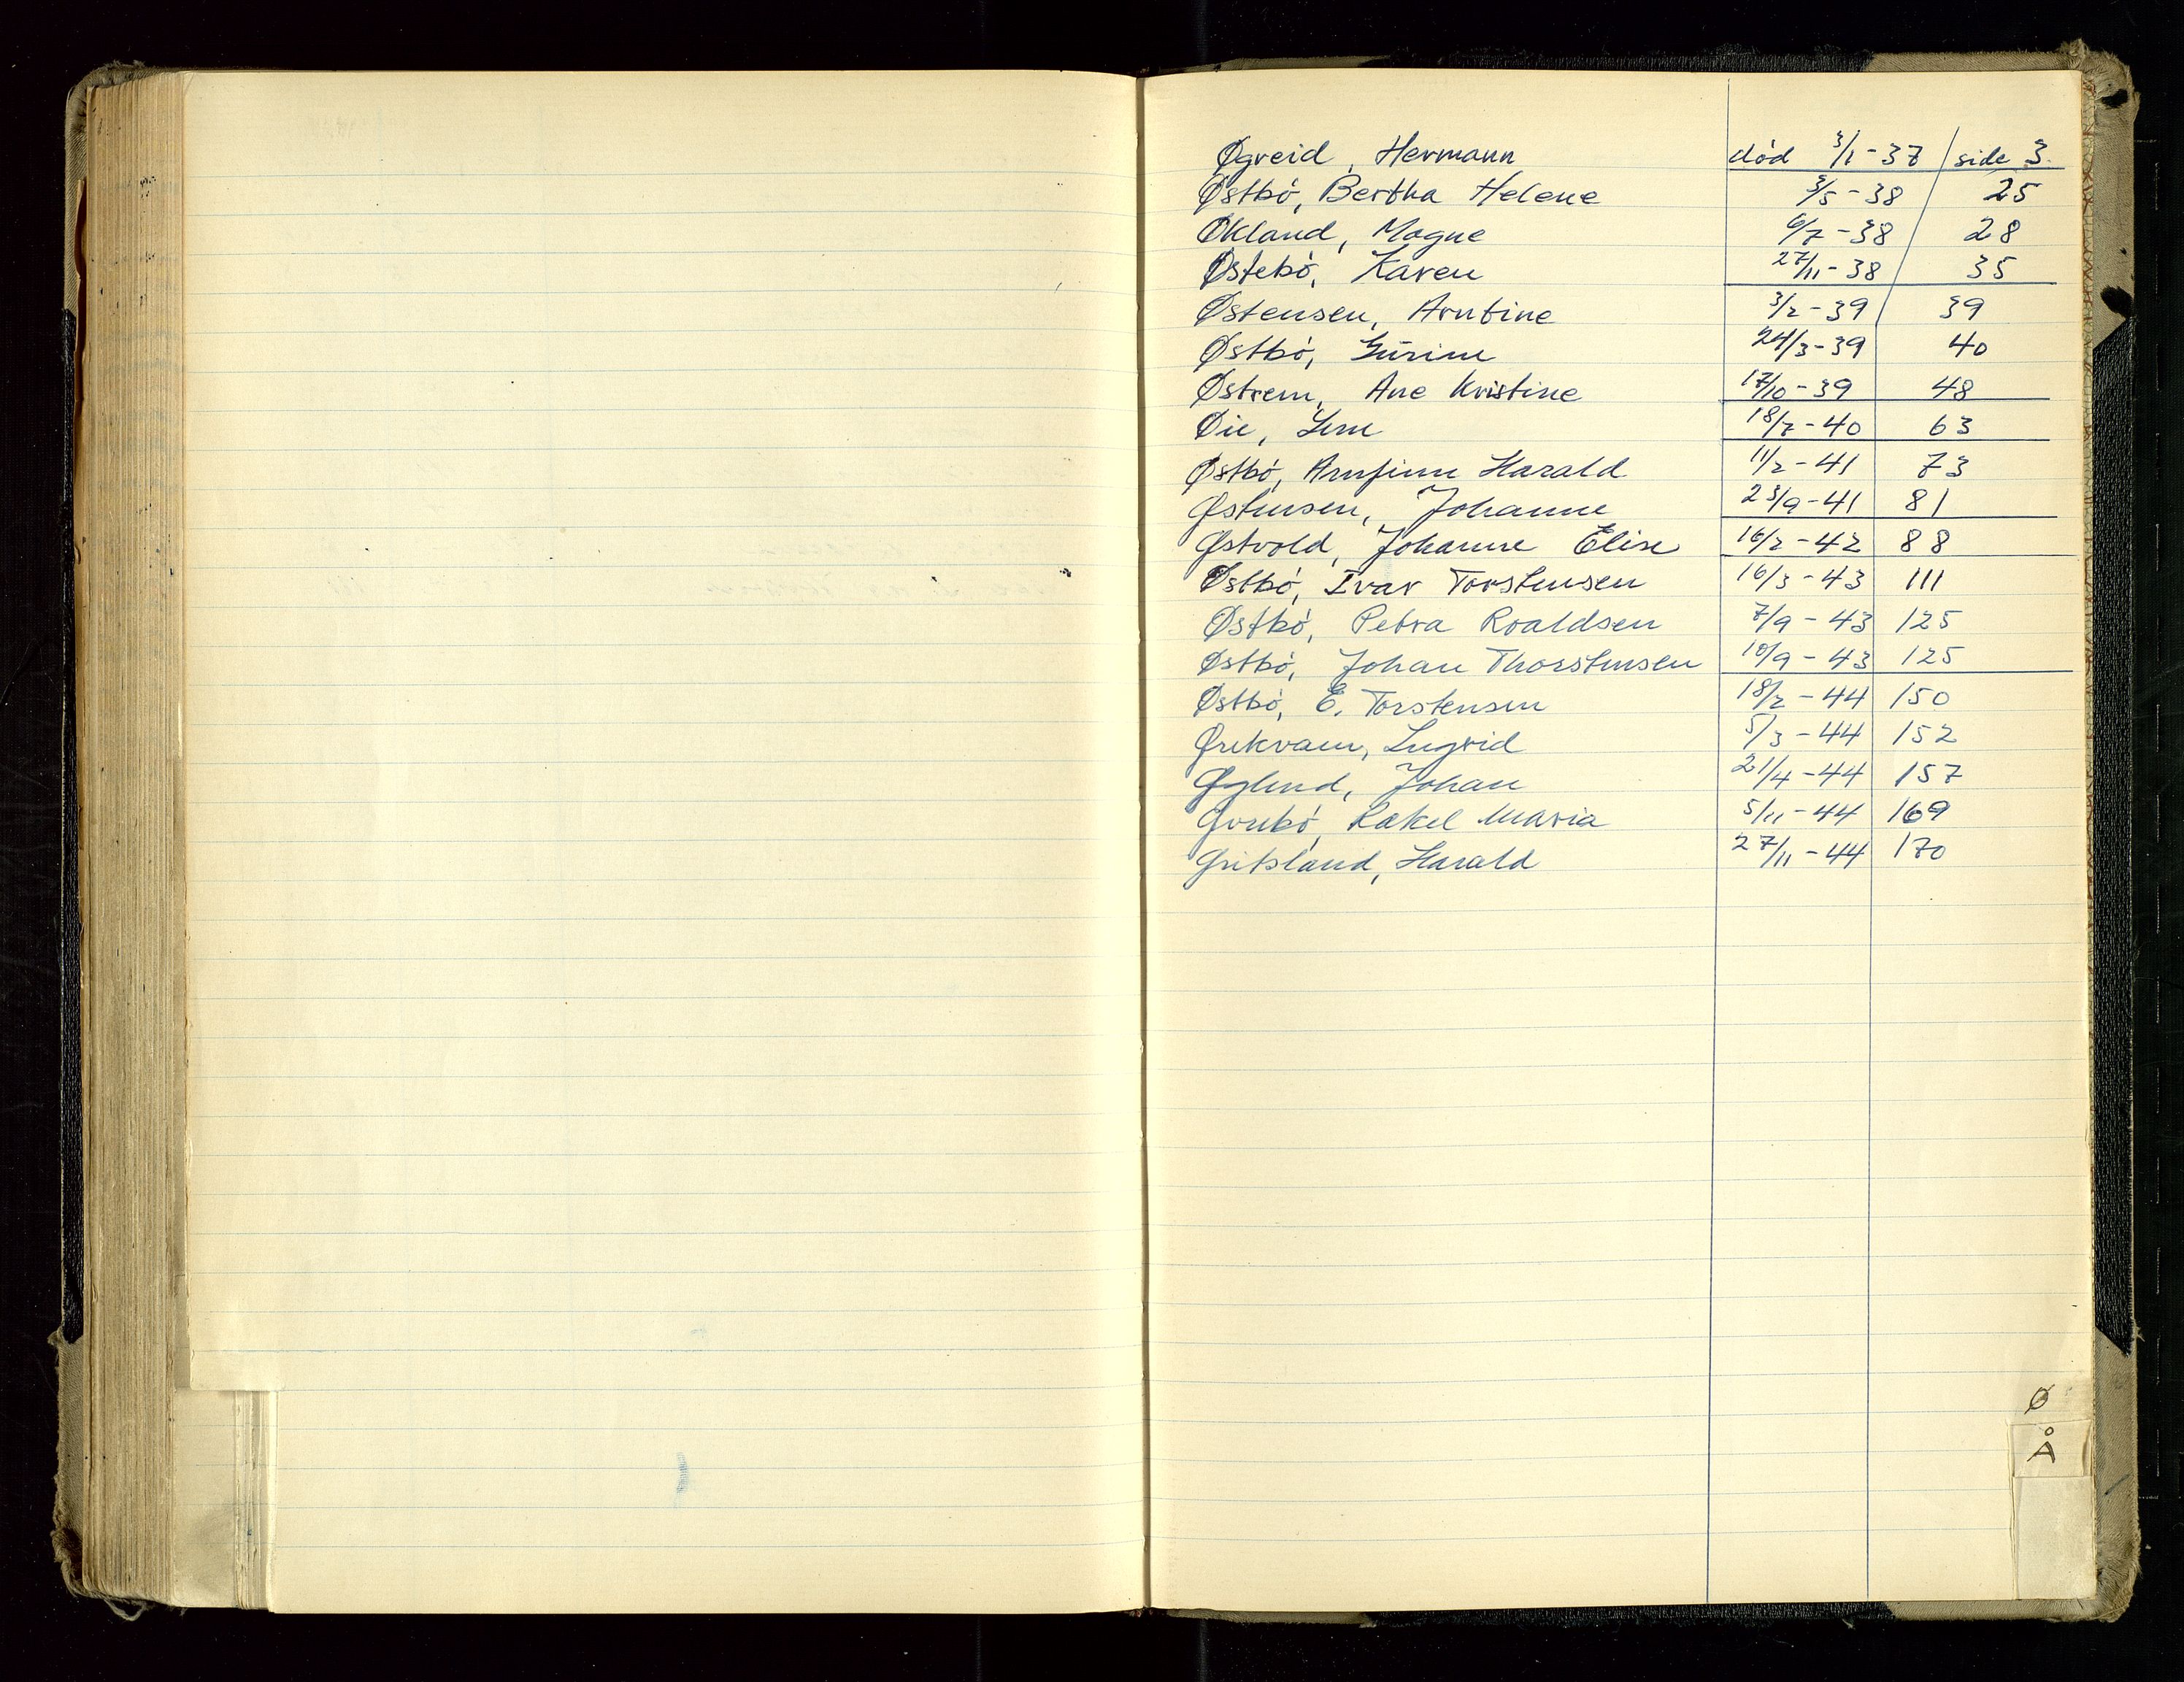 Øgreid, Hermann død 3/1-37 side 3.
Østbö, Bertha Helene 3/5-38 25
Økland, Magne 6/7-38 28
Østebö, Karen 27/11-38 35
Østensen, Arntine 3/2-39 39
Østbö, Gurine 24/3-39 40
Østrem, Ane Kristine 17/10-39 48
Øie, Lene 18/7-40 63
Østbö, Arnfinn Harald 11/2-41 73
Østensen, Johanne 23/9-41 81
Østvold, Johanne Elise 16/2-42 88
Østbö, Ivar Torstensen 16/3-43 111
Østbö, Petra Roaldsen 7/9-43 125
Østbö, Johan Thorstensen 10/9-43 125
Østbö, E. Torstensen 18/2-44 150
Ørekvam, Ingvid 5/3-44 152
Øglend, Johan 21/4-44 157
Rakel Maria 5/11-44 169
Harald 27/11-44 170
Ø
Å